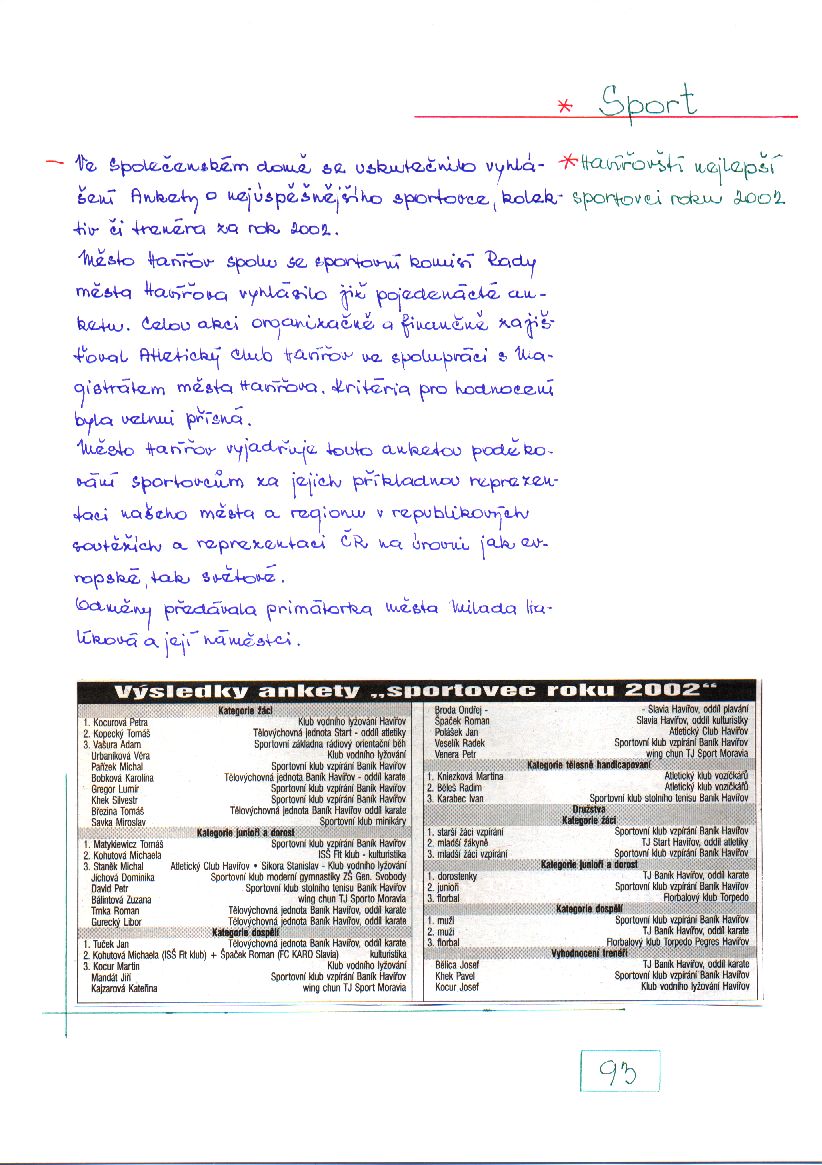 * Sport
– Ve společenském domě se uskutečnilo vyhlá-
šení Ankety o nejúspěšnějšího sportovce, kolek-
tiv či trenéra za rok 2002.
* Havířovští nejlepší
sportovci roku 2002
Město Havířov spolu se sportovní komisí Rady
města Havířova vyhlásilo již pojedenácté an-
ketu. Celou akci organizačně a finančně zajiš-
ťoval Atletický club Havířov ve spolupráci s Ma-
gistrátem města Havířova. Kritéria pro hodnocení
byla velmi přísná.
Město Havířov vyjadřuje touto anketou poděko-
vání sportovcům za jejich příkladnou reprezen-
taci našeho města a regionu v republikových
soutěžích a reprezentaci ČR na úrovni jak ev-
ropské, tak světové.
Odměny předávala primátorka města Milada Ha-
líková a její náměstci.
Výsledky ankety „sportovec roku 2002“
Kategorie žáci
1. Kocurová Petra Klub vodního lyžování Havířov
2. Kopecký Tomáš Tělovýchovná jednota Start - oddíl atletiky
3. Vašura Adam Sportovní základna rádiový orientační běh
Urbaniková Věra Klub vodního lyžování
Pařízek Michal Sportovní klub vzpírání Baník Havířov
Bobková Karolina Tělovýchovná jednota Baník Havířov - oddíl karate
Gregor Lumír Sportovní klub vzpírání Baník Havířov
Khek Silvestr Sportovní klub vzpírání Baník Havířov
Březina Tomáš Tělovýchovná jednota Baník Havířov oddíl karate
Savka Miroslav Sportovní klub minikáry
Kategorie junioři a dorost
1. Matykiewicz Tomáš Sportovní klub vzpírání Baník Havířov
2. Kohutová Michaela ISŠ Fit klub - kulturistika
3. Staněk Michal Atletický Club Havířov • Sikora Stanislav - Klub vodního lyžování
Jichová Dominika Sportovní klub moderní gymnastiky ZŠ Gen. Svobody
David Petr Sportovní klub stolního tenisu Baník Havířov
Bálintová Zuzana wing chun TJ Sporto Moravia
Trnka Roman Tělovýchovná jednota Baník Havířov, oddíl karate
Gurecký Libor Tělovýchovná jednota Baník Havířov, oddíl karate
Kategorie dospělí
1. Tuček Jan Tělovýchovná jednota Baník Havířov, oddíl karate
2. Kohutová Michaela (ISŠ Fit klub) + Špaček Roman (FC KARO Slavia) kulturistika
3. Kocur Martin Klub vodního lyžování
Mandát Jiří Sportovní klub vzpírání Baník Havířov
Kajzarová Kateřina wing chun TJ Sport Moravia
Broda Ondřej - - Slavia Havířov, oddíl plavání
Špaček Roman Slavia Havířov, oddíl kulturistiky
Polášek Jan Atletický Club Havířov
Veselík Radek Sportovní klub vzpírání Baník Havířov
Venera Petr wing chun TJ Sport Moravia
Kategorie tělesně handicapovaní
1. Kniezková Martina Atletický klub vozíčkářů
2. Běleš Radim Atletický klub vozíčkářů
3. Karabec Ivan Sportovní klub stolního tenisu Baník Havířov
Družstva
Kategorie žáci
1. starší žáci vzpírání Sportovní klub vzpírání Baník Havířov
2. mladší žákyně TJ Start Havířov, oddíl atletiky
3. mladší žáci vzpírání Sportovní klub vzpírání Baník Havířov
Kategorie junioři a dorost
1. dorostenky TJ Baník Havířov, oddíl karate
2. junioři Sportovní klub vzpírání Baník Havířov
3. florbal Florbalový klub Torpedo
Kategorie dospělí
1. muži Sportovní klub vzpírání Baník Havířov
2. muži TJ Baník Havířov, oddíl karate
3. florbal Florbalový klub Torpedo Pegres Havířov
Vyhodnocení trenéři
Bělica Josef TJ Baník Havířov, oddíl karate
Khek Pavel Sportovní klub vzpírání Baník Havířov
Kocur Josef Klub vodního lyžování Havířov
93